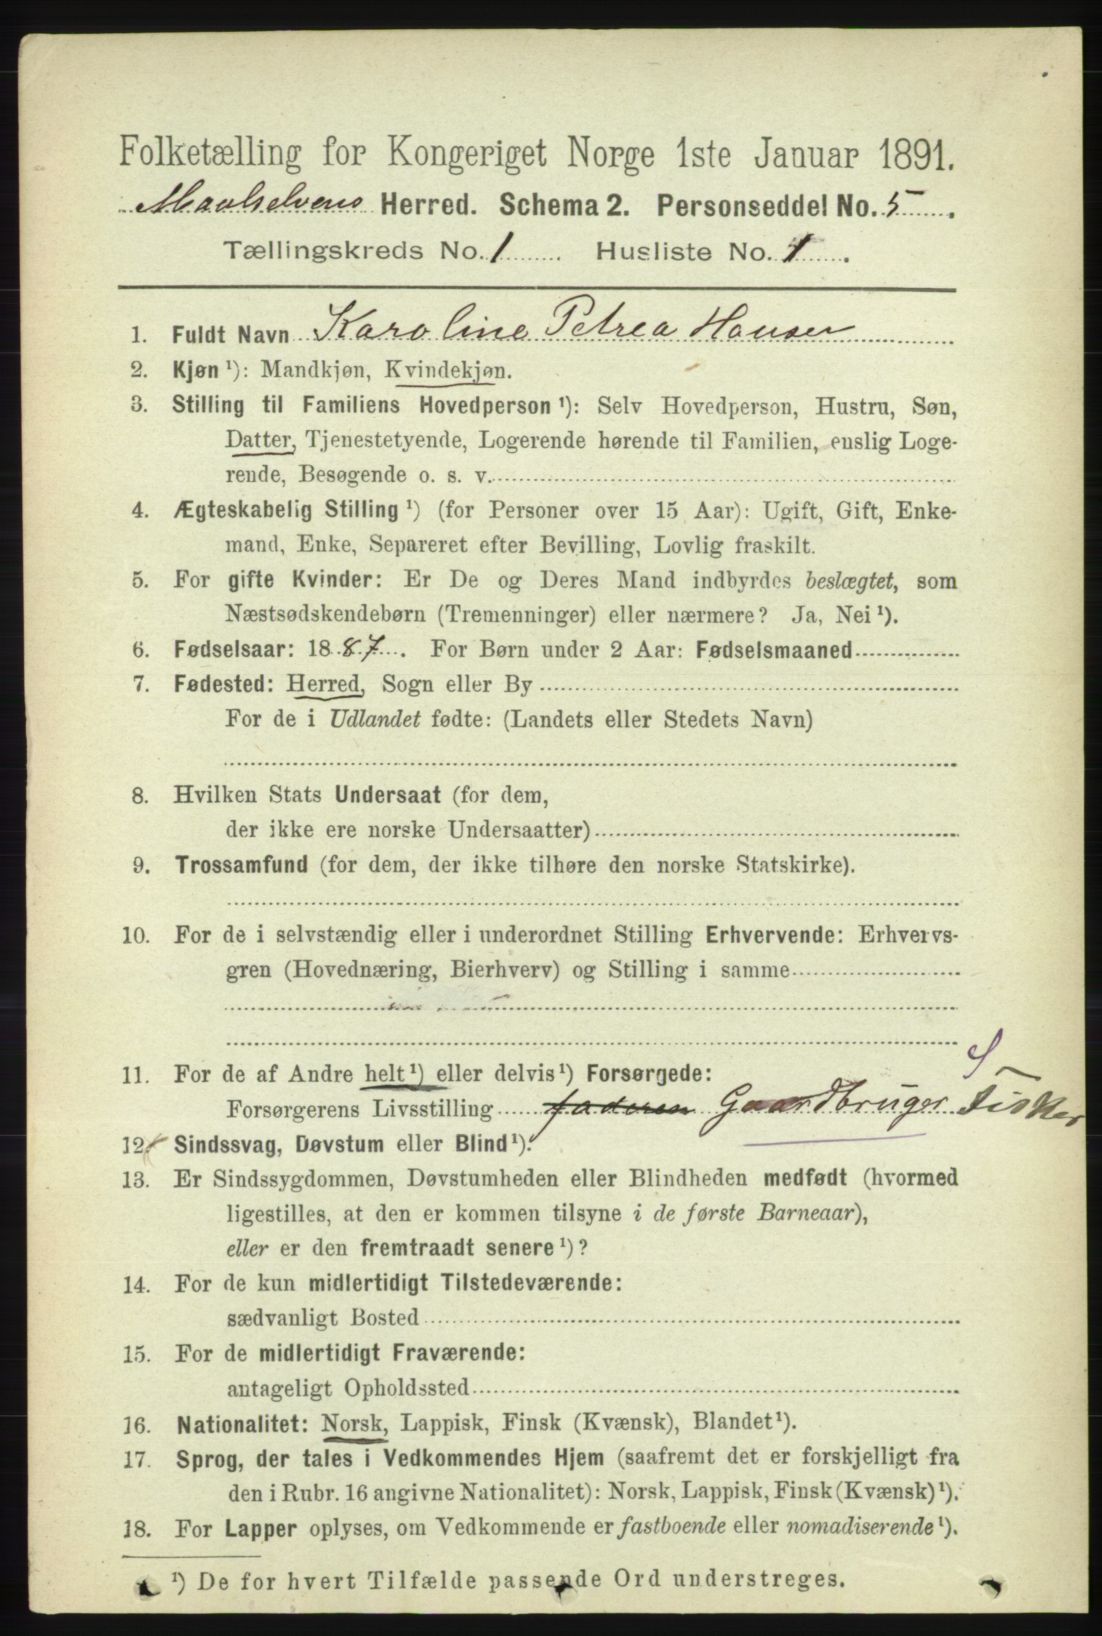 Folketælling for Kongeriget Norge 1ste Januar 1891.
Maalselvens Herred. Schema 2. Personseddel No. 5.
Tællingskreds No. 1 Husliste No. 1.
1. Fuldt Navn Karoline Petrea Hansen
2. Kjøn ¹): Mandkjøn, Kvindekjøn.
3. Stilling til Familiens Hovedperson ¹): Selv Hovedperson, Hustru, Søn,
Datter, Tjenestetyende, Logerende hørende til Familien, enslig Loge-
rende, Besøgende o. s. v.
4. Ægteskabelig Stilling ¹) (for Personer over 15 Aar): Ugift, Gift, Enke-
mand, Enke, Separeret efter Bevilling, Lovlig fraskilt.
5. For gifte Kvinder: Er De og Deres Mand indbyrdes beslægtet, som
Næstsødskendebørn (Tremenninger) eller nærmere? Ja, Nei ¹).
6. Fødselsaar: 1887. For Børn under 2 Aar: Fødselsmaaned
7. Fødested: Herred, Sogn eller By
For de i Udlandet fødte: (Landets eller Stedets Navn)
8. Hvilken Stats Undersaat (for dem,
der ikke ere norske Undersaatter)
9. Trossamfund (for dem, der ikke tilhøre den norske Statskirke).
10. For de i selvstændig eller i underordnet Stilling Erhvervende: Erhvervs-
gren (Hovednæring, Bierhverv) og Stilling i samme
11. For de af Andre helt ¹) eller delvis ¹) Forsørgede:
Forsørgerens Livsstilling faderen Gaardbruger Fisker
12. Sindssvag, Døvstum eller Blind ¹).
13. Er Sindssygdommen, Døvstumheden eller Blindheden medfødt (hvormed
ligestilles, at den er kommen tilsyne i de første Barneaar),
eller er den fremtraadt senere ¹)?
14. For de kun midlertidigt Tilstedeværende:
sædvanligt Bosted
15. For de midlertidigt Fraværende:
antageligt Opholdssted
16. Nationalitet: Norsk, Lappisk, Finsk (Kvænsk), Blandet ¹).
17. Sprog, der tales i Vedkommendes Hjem (saafremt det er forskjelligt fra
den i Rubr. 16 angivne Nationalitet): Norsk, Lappisk, Finsk (Kvænsk) ¹).
18. For Lapper oplyses, om Vedkommende er fastboende eller nomadiserende ¹).
¹) De for hvert Tilfælde passende Ord understreges.